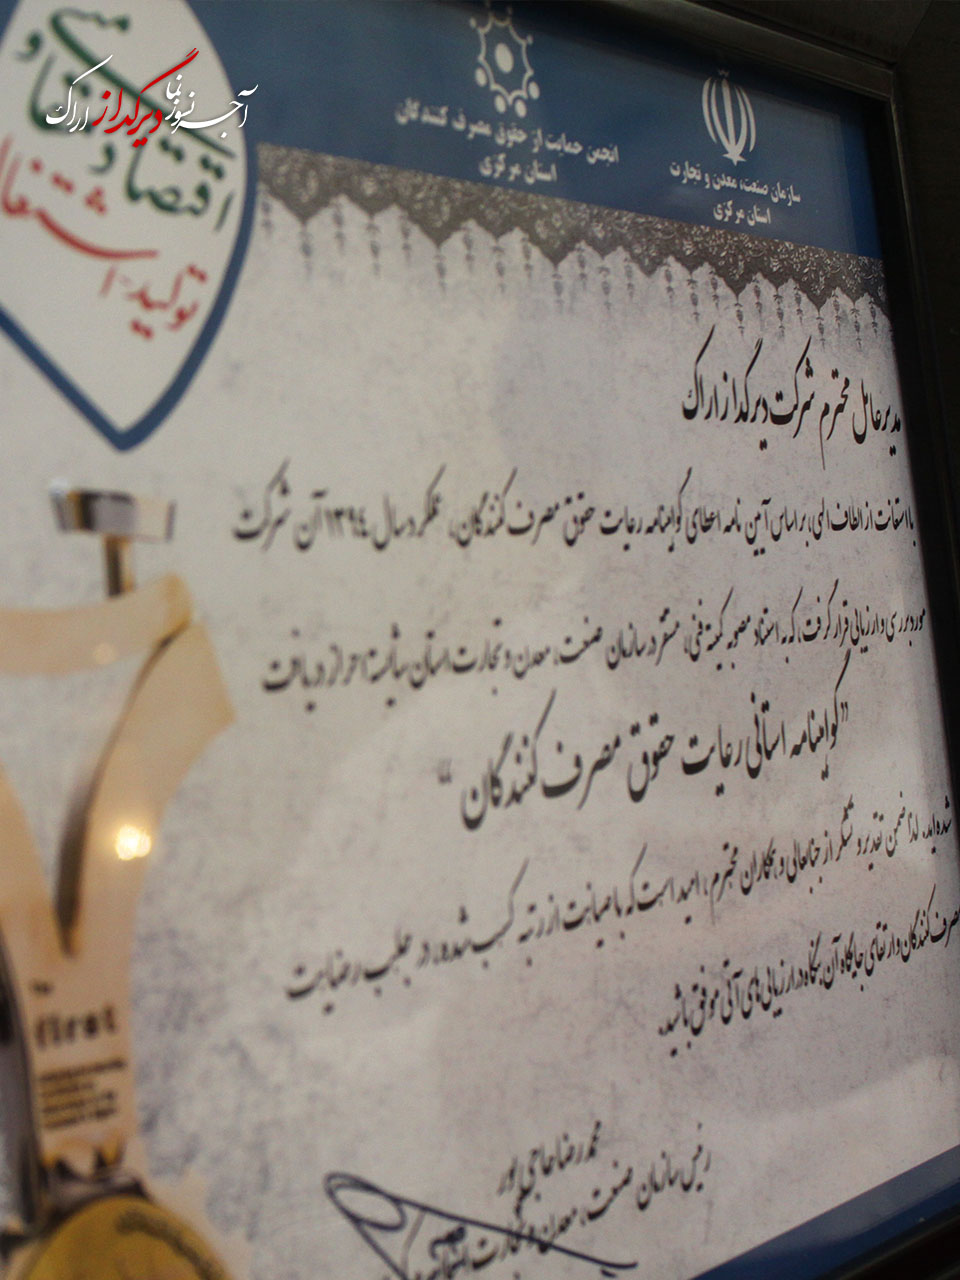 آجر نسوز نما دیرگداز اراک
اقتصاد مقاومتی
تولید-اشتغال
انجمن حمایت از حقوق مصرف کنندگان
استان مرکزی
سازمان صنعت، معدن و تجارت
استان مرکزی
مدیرعامل محترم شرکت دیرگداز اراک
با استعانت از الطاف الهی، بر اساس آیین نامه اعطای گواهینامه رعایت حقوق مصرف کنندگان، عملکرد سال ۱۳۹۴ آن شرکت
مورد بررسی و ارزیابی قرار گرفت، که به استناد مصوبه کمیته فنی، مستقر در سازمان صنعت، معدن و تجارت استان شایسته احراز دریافت
”گواهینامه استانی رعایت حقوق مصرف کنندگان“
شده اید. لذا ضمن تقدیر و تشکر از جنابعالی و همکاران محترم، امید است که با صیانت از رتبه کسب شده، در جلب رضایت
مصرف کنندگان و ارتقای جایگاه آن بنگاه در ارزیابی های آتی موفق باشید.
محمدرضا حاجی پور
رئیس سازمان صنعت، معدن و تجارت استان
first